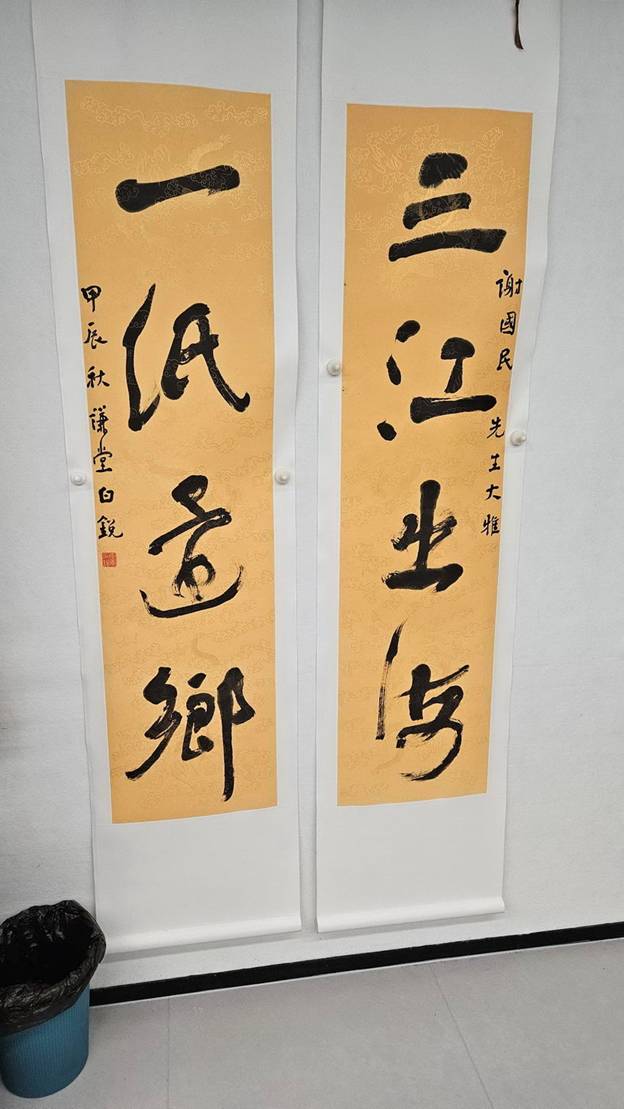 謝國民 先生大雅
三江出海
一紙還鄉
甲辰秋謙堂白銳